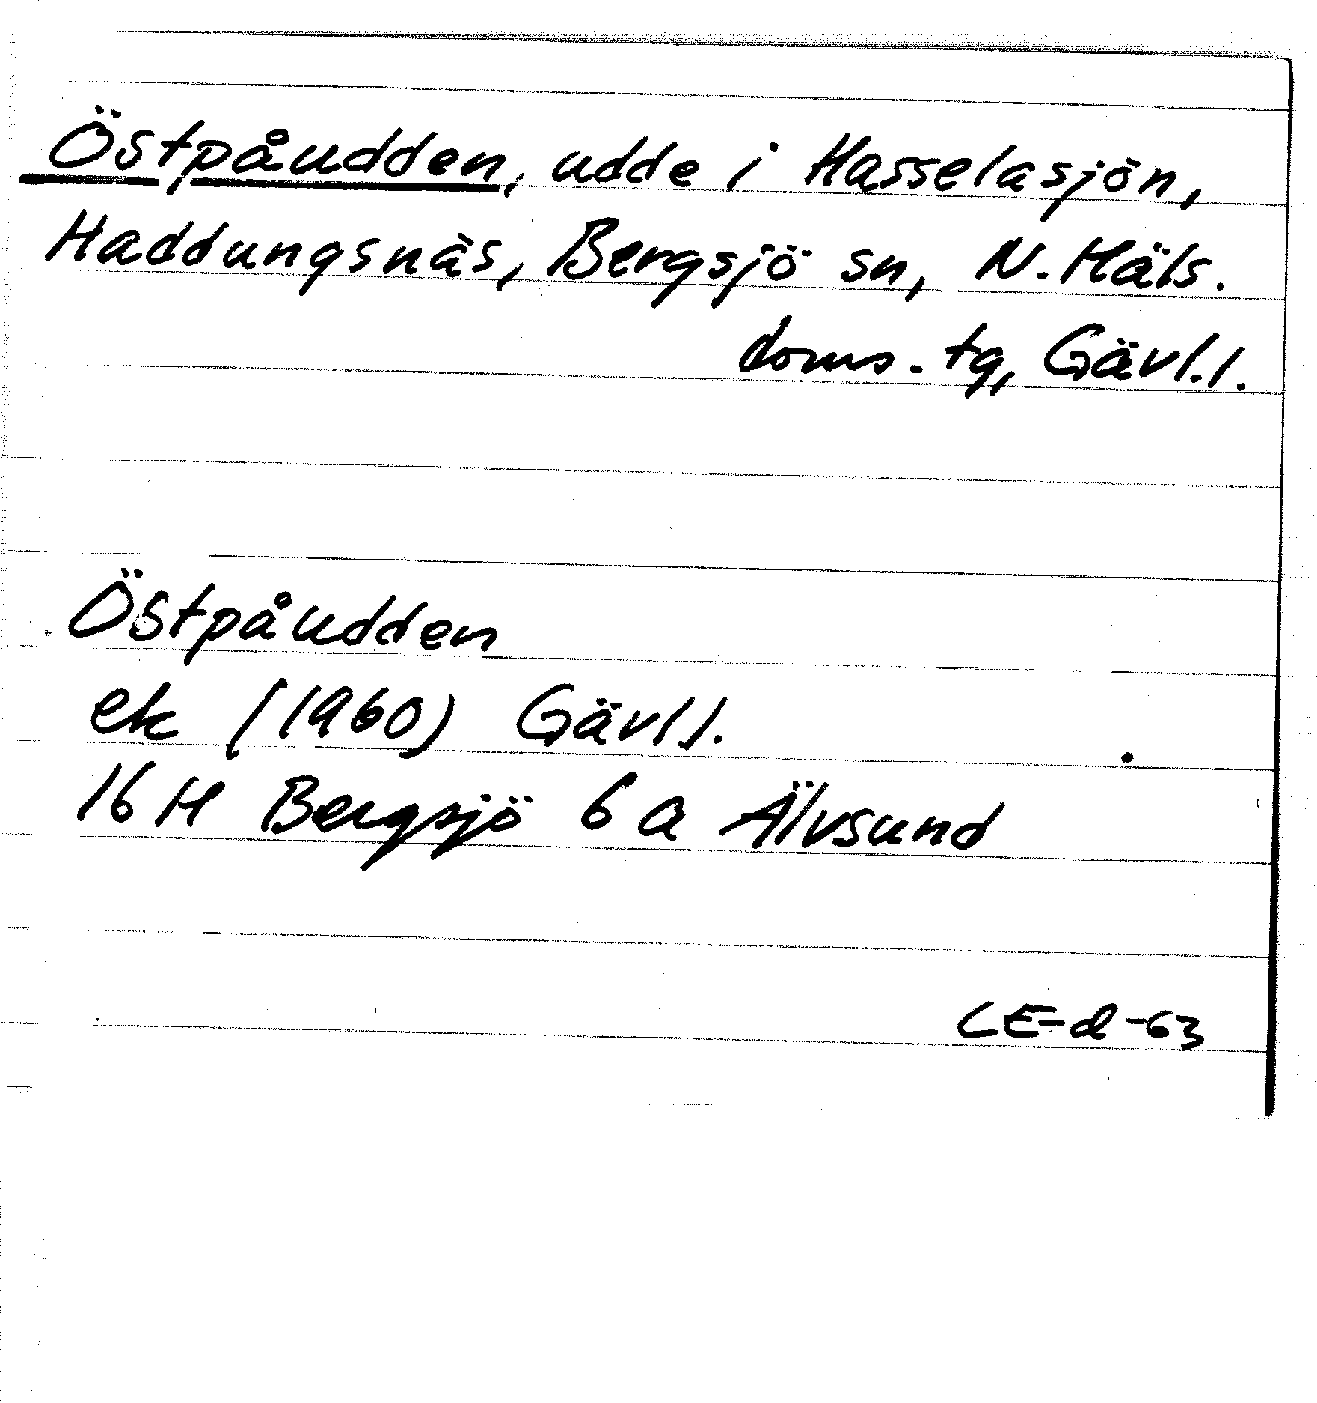 Östpåudden, udde i Hasselasjön,
Haddungsnäs, Bergsjö sn, N. Häls.
doms. tg, Gävl. l.
Östpåudden
ek (1960) Gävl l.
16 H Bergsjö 6 a Älvsund
CE-d-63